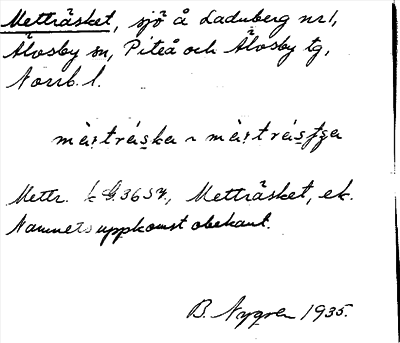 Metträsket, sjö å Laduberg nr 1,
Älvsby sn, Piteå och Älvsby tg,
Norrb. l.
mè̀t:trǻska ~ mè̀t:trǻsʃga
Mettr. k, Metträsket, ek.
Namnets uppkomst obekant.
B. Nygren 1935.